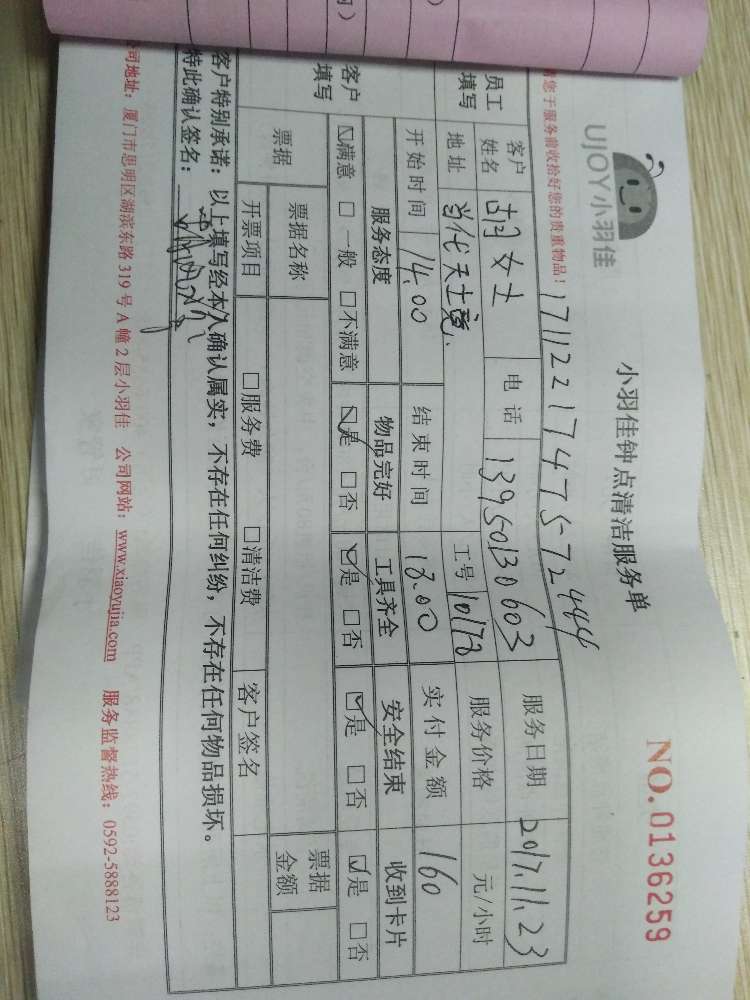 UJOY小羽佳
小羽佳钟点清洁服务单
NO.0136259
请您于服务前收拾好您的贵重物品！
171122174757244
员工填写
客户姓名
胡女士
电话
13950130603
服务日期
2017.11.23
地址
当代天境
工号
10178
服务价格
元/小时
开始时间
14.00
结束时间
18.00
实付金额
160
客户填写
服务态度
物品完好
工具齐全
安全结束
收到卡片
满意 □ 一般 □ 不满意
是 □ 否
是 □ 否
是 □ 否
是 □ 否
票据
票据名称
票据金额
开票项目
□ 服务费 □ 清洁费
客户签名
客户特别承诺：以上填写经本人确认属实，不存在任何纠纷，不存在任何物品损坏。
特此确认签名：
公司地址：厦门市思明区湖滨东路 319 号 A 幢 2 层小羽佳 公司网站：www.xiaoyujia.com 服务监督热线：0592-5888123